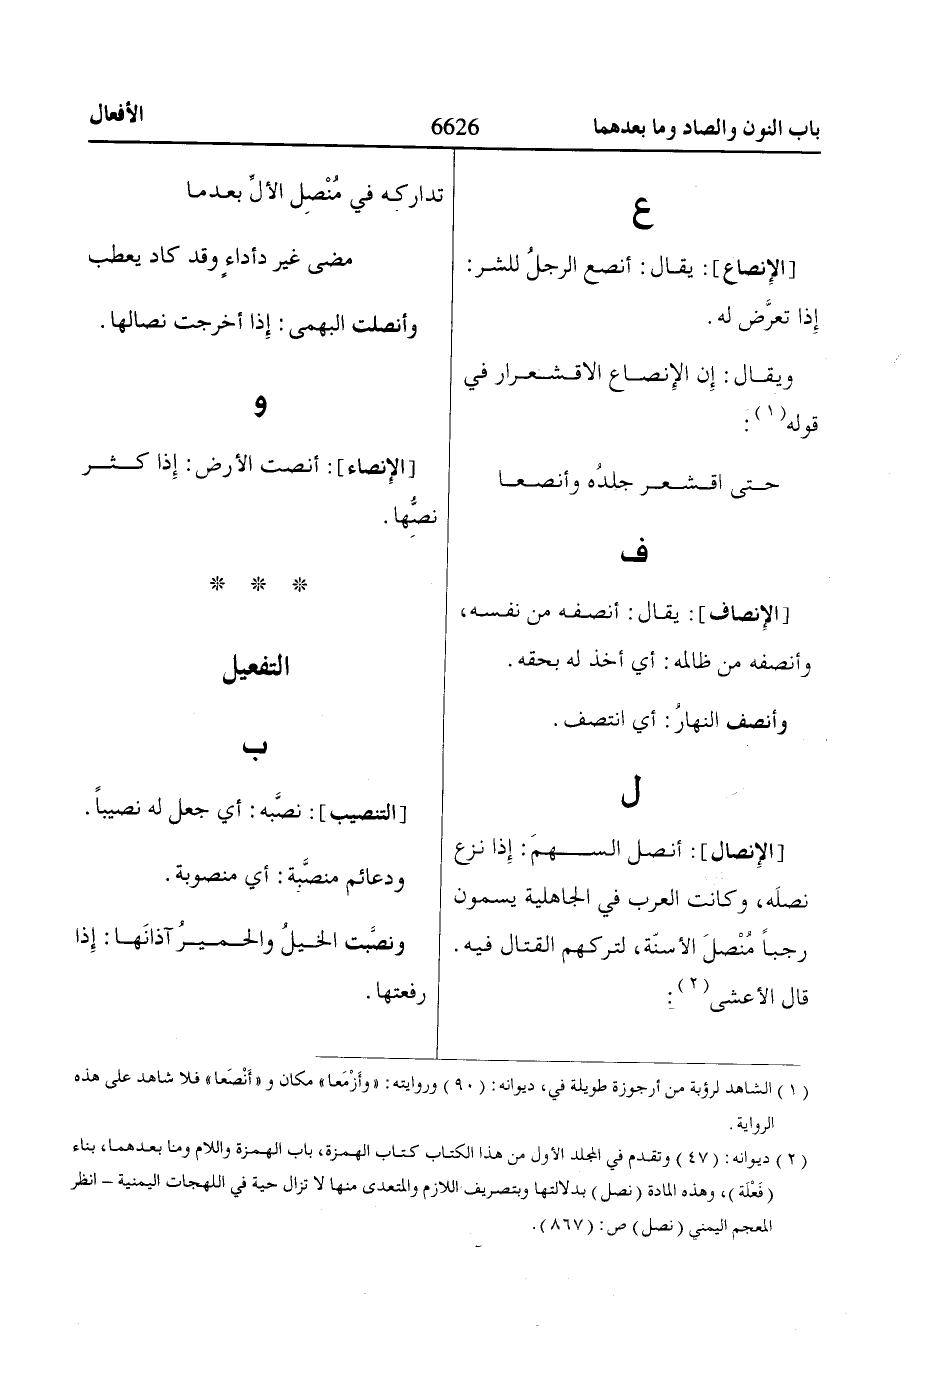 باب النون والصاد وما بعدهما
6626
الأفعال
ع
[الإنصاع]: يقال: أنصع الرجلُ للشر:
إذا تعرَّض له.
ويقال: إن الإنصاع الاقشعرار في
قوله(١):
حتى اقشعر جلدُه وأنصعا
ف
[الإنصاف]: يقال: أنصفه من نفسه،
وأنصفه من ظالمه: أي أخذ له بحقه.
وأنصف النهارُ: أي انتصف.
ل
[الإنصال]: أنصل السهمَ: إذا نزع
نصلَه، وكانت العرب في الجاهلية يسمون
رجباً مُنْصلَ الأسنّة، لتركهم القتال فيه.
قال الأعشى(٢):
تداركه في مُنْصِل الألِّ بعدما
مضى غير دأداءٍ وقد كاد يعطب
وأنصلت البهمى: إذا أخرجت نصالها.
و
[الإنصاء]: أنصت الأرض: إذا كثر
نصُّها.
* * *
التفعيل
ب
[التنصيب]: نصَّبه: أي جعل له نصيباً.
ودعائم منصَّبة: أي منصوبة.
ونصَّبت الخيلُ والحميرُ آذانَها: إذا
رفعتها.
(١) الشاهد لرؤبة من أرجوزة طويلة في، ديوانه: (٩٠) وروايته: «وأَزْمَعا» مكان و «أَنْصَعا» فلا شاهد على هذه
الرواية.
(٢) ديوانه: (٤٧) وتقدم في المجلد الأول من هذا الكتاب كتاب الهمزة، باب الهمزة واللام وما بعدهما، بناء
(فَعْلَة)، وهذه المادة (نصل) بدلالتها وبتصريف اللازم والمتعدى منها لا تزال حية في اللهجات اليمنية – انظر
المعجم اليمني (نصل) ص: (٨٦٧).